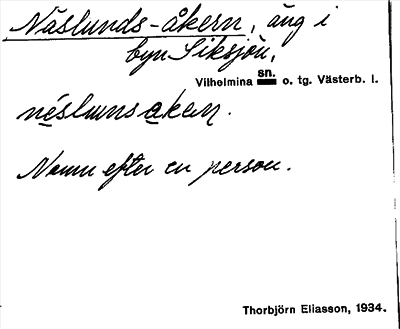 Näslunds-åkern, äng i
byn Siksjön,
Vilhelmina sn. o. tg. Västerb. l.
néslunsakeṇ.
Namn efter en person.
Thorbjörn Eliasson, 1934.